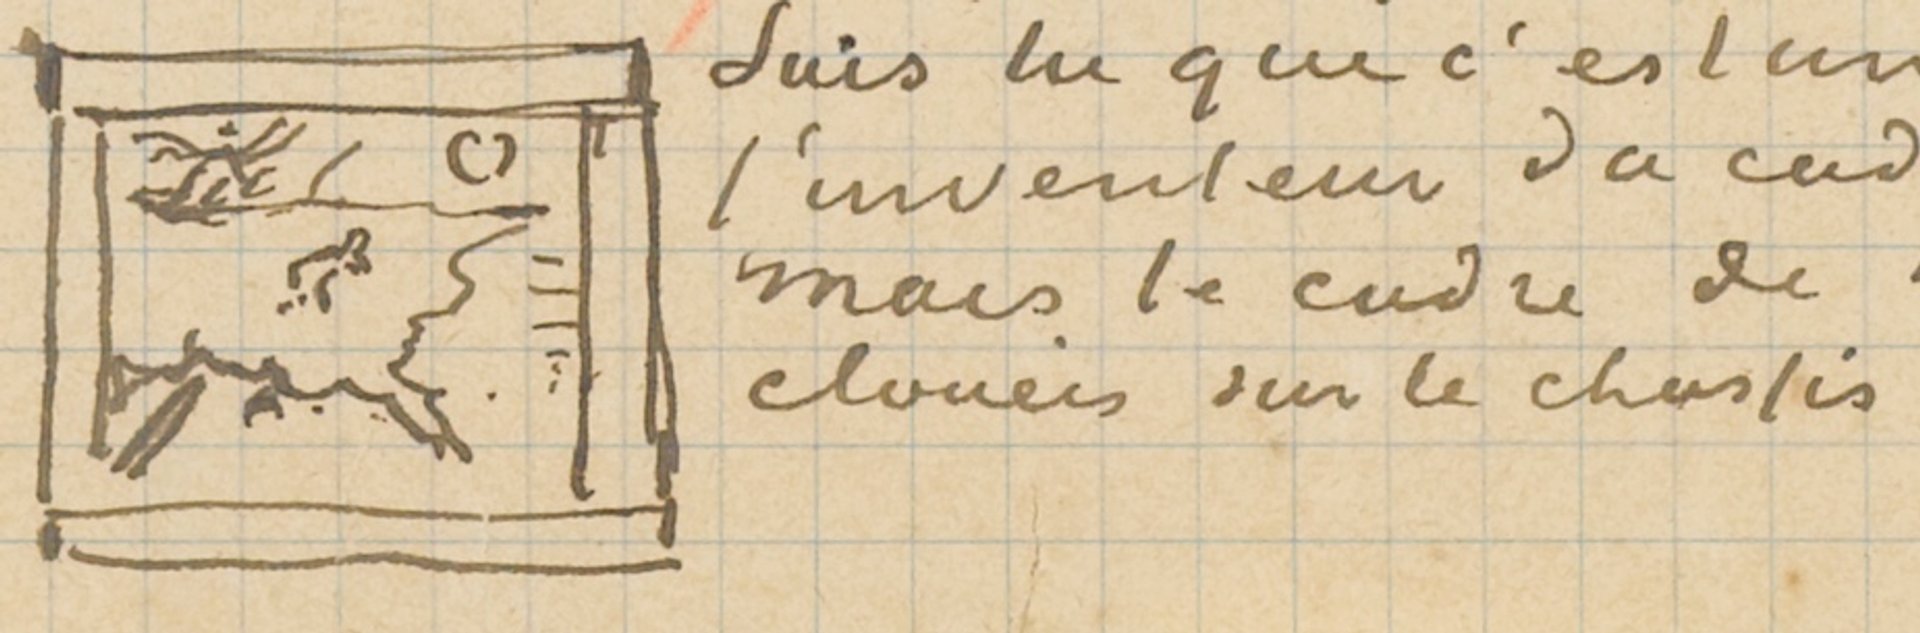 Sais tu que c'est un
l'inventeur du cad
mais le cadre de
clouées sur le chassis